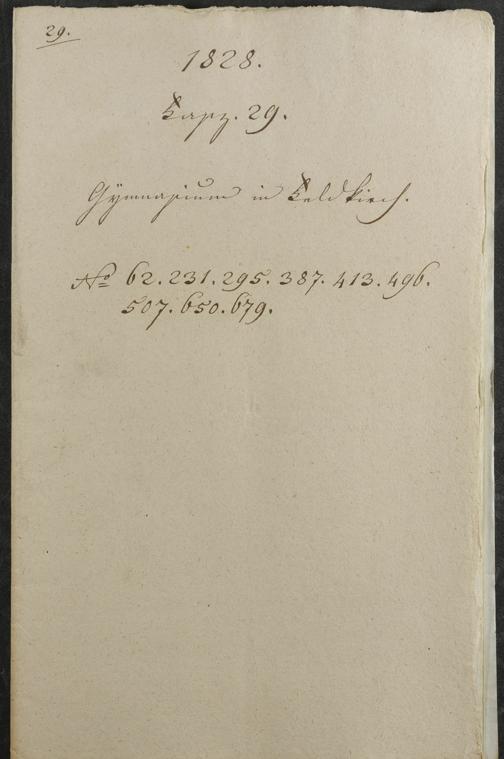 29.
1828.
Fasz. 29.
Gÿmnasium in Feldkirch.
No 62. 231. 295. 387. 413. 496.
507. 650. 679.